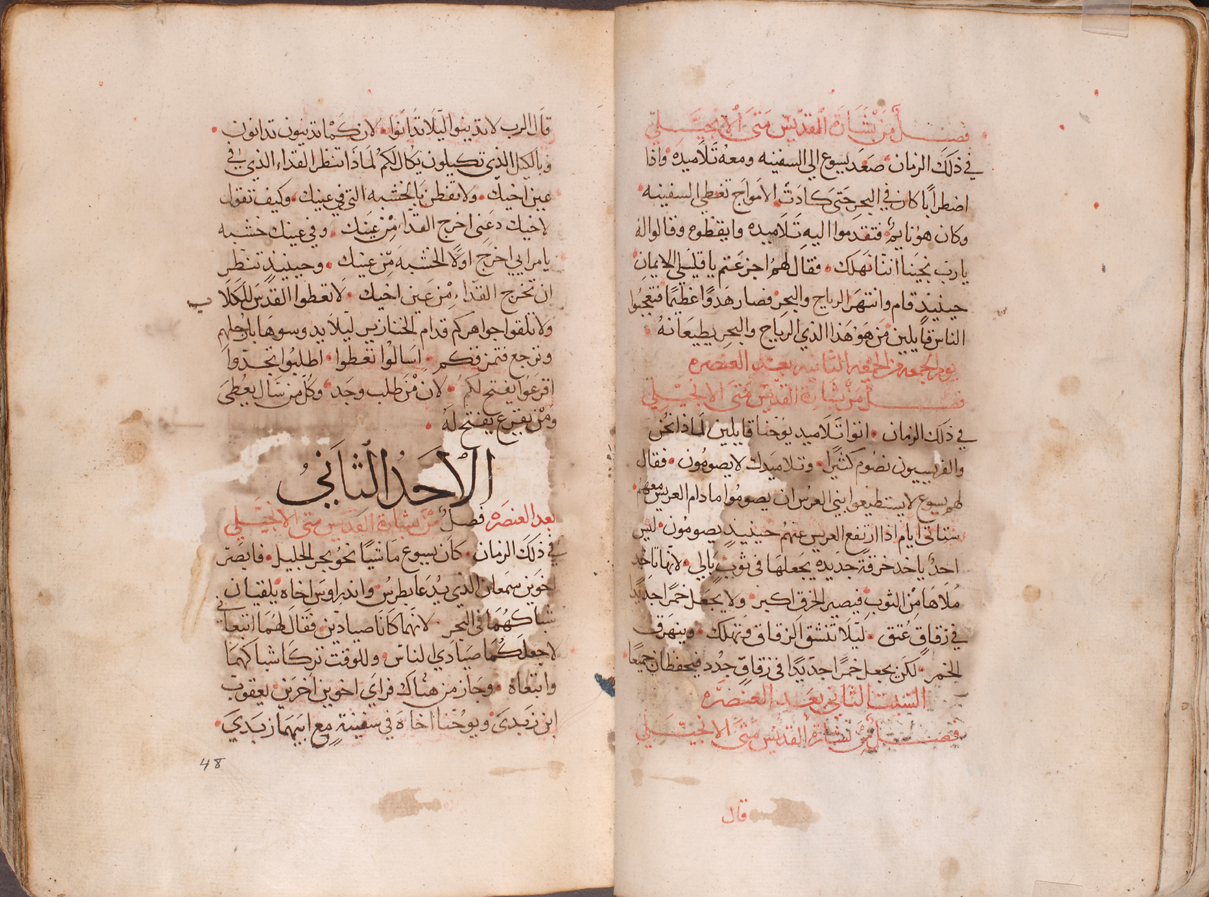 فصل من بشارة القديس متى الانجيلي
في ذلك الزمان صعد يسوع الي السفينه ومعه تلاميده واذا
اضطرابا كان في البحر حتى كادت الامواج تغطي السفينه
وكان هو نايم فتقدموا اليه تلاميده وايقظوه وقالوا له
يارب نجينا اننا نهلك فقال لهم اجزعتم يا قليلي الايمان
حينيد قام وانتهر الرياح والبحر فصار هدوا عظيما فتعجبوا
الناس قايلين من هو هذا الذي الرياح والبحر يطيعانه
يوم الجمعه من الجمعه الثانيه بعد العنصره
فصل من بشارة القديس متى الانجيلي
في ذلك الزمان اتوا تلاميد يوحنا قايلين لماذا نحن
والفريسيون نصوم كثيرا وتلاميدك لا يصومون فقال
لهم يسوع لا يستطيعوا بني العرس ان يصوموا مادام العريس معهم
ستاتي ايام اذا ارتفع العريس عنهم حينيد يصومون ليس
احد ياخد خرقة جديده يجعلها في ثوب بالي لانها تاخد
ملاها من الثوب فيصير الخرق اكبر ولا يجعل خمرا جديدا
في زقاق عتق ليلا تنشق الزقاق وتهلك وينهرق
الخمر لكن يجعل خمرا جديدا في زقاق جدد فيحفظان جميعا
السبت الثاني بعد العنصره
فصل من بشارة القديس متى الانجيلي
قال
قال الرب لا تدينوا ليلا تدانوا لان كما تدينون تدانون
وبالكيل الذي تكيلون يكال لكم لماذا تنظر القداء الذي في
عين اخيك ولا تفطن بالخشبه التي في عينك وكيف تقول
لاخيك دعني اخرج القداء من عينك وفي عينك خشبه
يا مرايي اخرج اولا الخشبه من عينك وحينيد تنظر
ان تخرج القداء من عين اخيك لا تعطوا القدس للكلاب
ولا تلقوا جواهركم قدام الخنازير ليلا يدوسوها بارجلهم
وترجع فتمزقكم اسالوا تعطوا اطلبوا تجدوا
اقرعوا يفتح لكم لان من طلب وجد وكل من سال يعطى
ومن يقرع يفتح له
الاحد الثاني
بعد العنصره فصل من بشارة القديس متى الانجيلي
في ذلك الزمان كان يسوع ماشيا نحو بحر الجليل فابصر
اخوين سمعان الذي يدعا بطرس واندراوس اخاه يلقيان
شباكهما في البحر لانهما كانا صيادين فقال لهما اتبعاني
لاجعلكما صيادي الناس وللوقت تركا شباكهما
وابتعاه وجاز من هناك فراي اخوين اخرين يعقوب
ابن زبدى ويوحنا اخاه في سفينة مع ابيهما زبدي
48